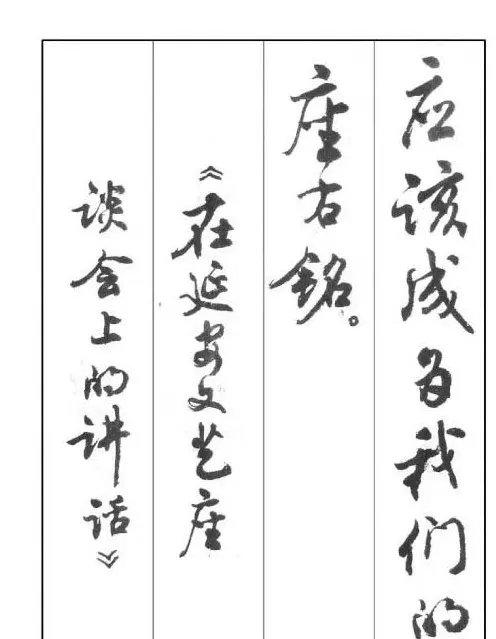 应该成为我们的
座右铭。
《在延安文艺座
谈会上的讲话》